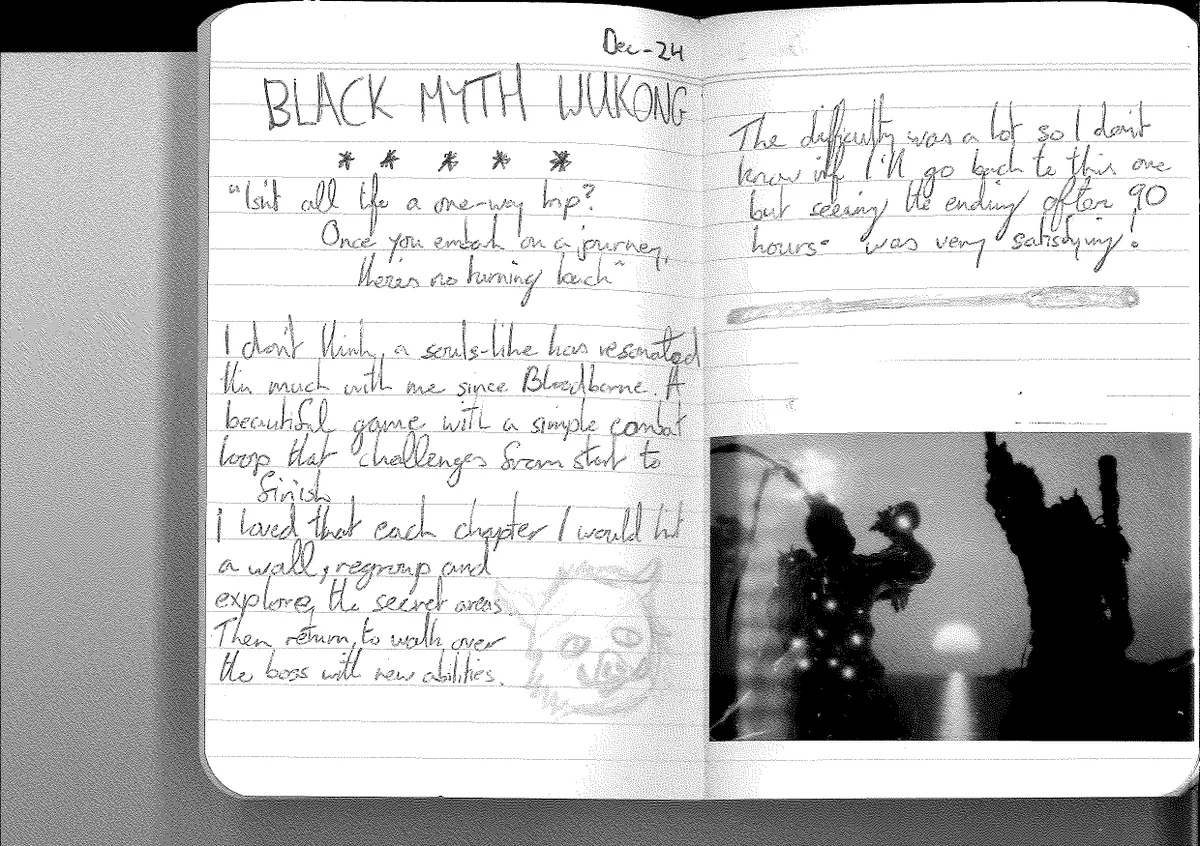 Dec-24
BLACK MYTH WUKONG
* * * * *
"Isn't all life a one-way trip?
Once you embark on a journey,
there's no turning back"
I don't think, a souls-like has resonated
this much with me since Bloodborne. A
beautiful game with a simple combat
loop that challenges from start to
finish
I loved that each chapter I would hit
a wall, regroup and
explore, the secret areas
Then return, to walk over
the boss with new abilities.
The difficulty was a lot so I don't
know if I'll go back to this one
but seeing the ending after 90
hours was very satisfying!